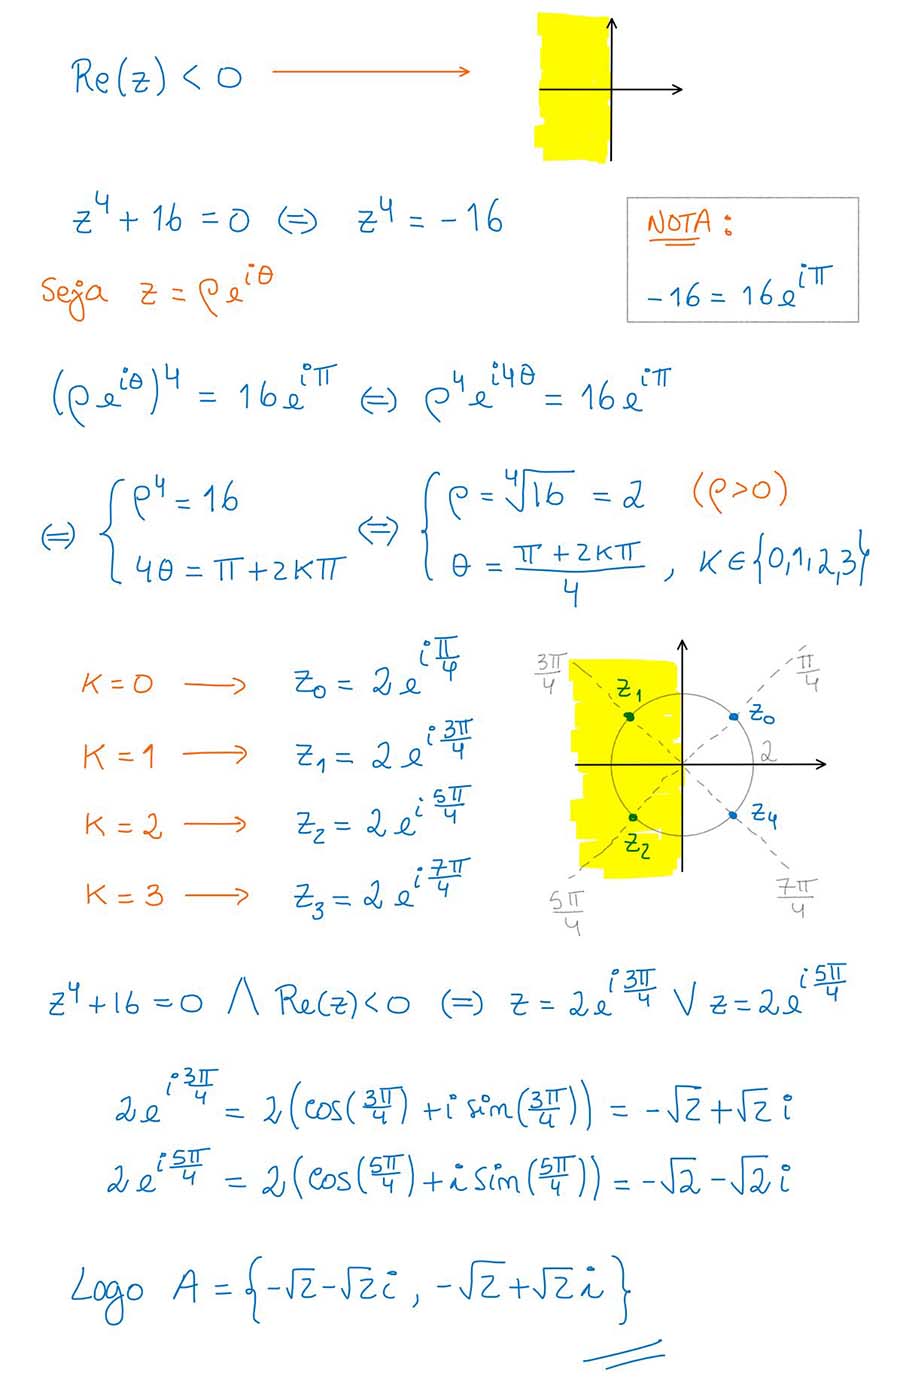 Re(z) < 0
z⁴ + 16 = 0 ⇔ z⁴ = -16
NOTA:
-16 = 16e^{iπ}
Seja z = ρe^{iθ}
(ρe^{iθ})⁴ = 16e^{iπ} ⇔ ρ⁴e^{i4θ} = 16e^{iπ}
⇔ { ρ⁴ = 16 ⇔ { ρ = ⁴√16 = 2 (ρ>0)
4θ = π + 2kπ θ = (π + 2kπ)/4 , k ∈ {0,1,2,3}
k = 0 → z₀ = 2e^{iπ/4}
k = 1 → z₁ = 2e^{i3π/4}
k = 2 → z₂ = 2e^{i5π/4}
k = 3 → z₃ = 2e^{i7π/4}
3π/4
π/4
z₁
z₀
2
z₂
z₄
5π/4
7π/4
z⁴ + 16 = 0 ∧ Re(z) < 0 ⇔ z = 2e^{i3π/4} ∨ z = 2e^{i5π/4}
2e^{i3π/4} = 2(cos(3π/4) + i sin(3π/4)) = -√2 + √2 i
2e^{i5π/4} = 2(cos(5π/4) + i sin(5π/4)) = -√2 - √2 i
Logo A = {-√2 - √2 i , -√2 + √2 i}